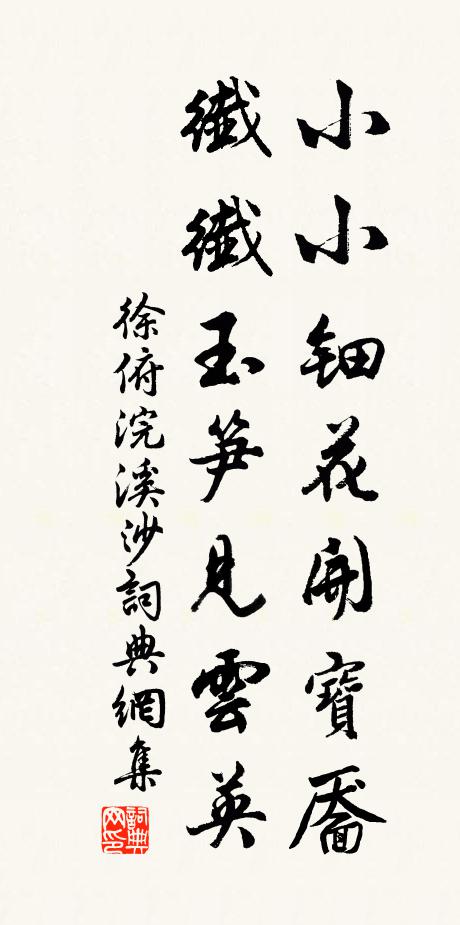 小小鈿花開寶靨
纖纖玉笋見雲英
徐俯浣溪沙詞典網集
詞典網印